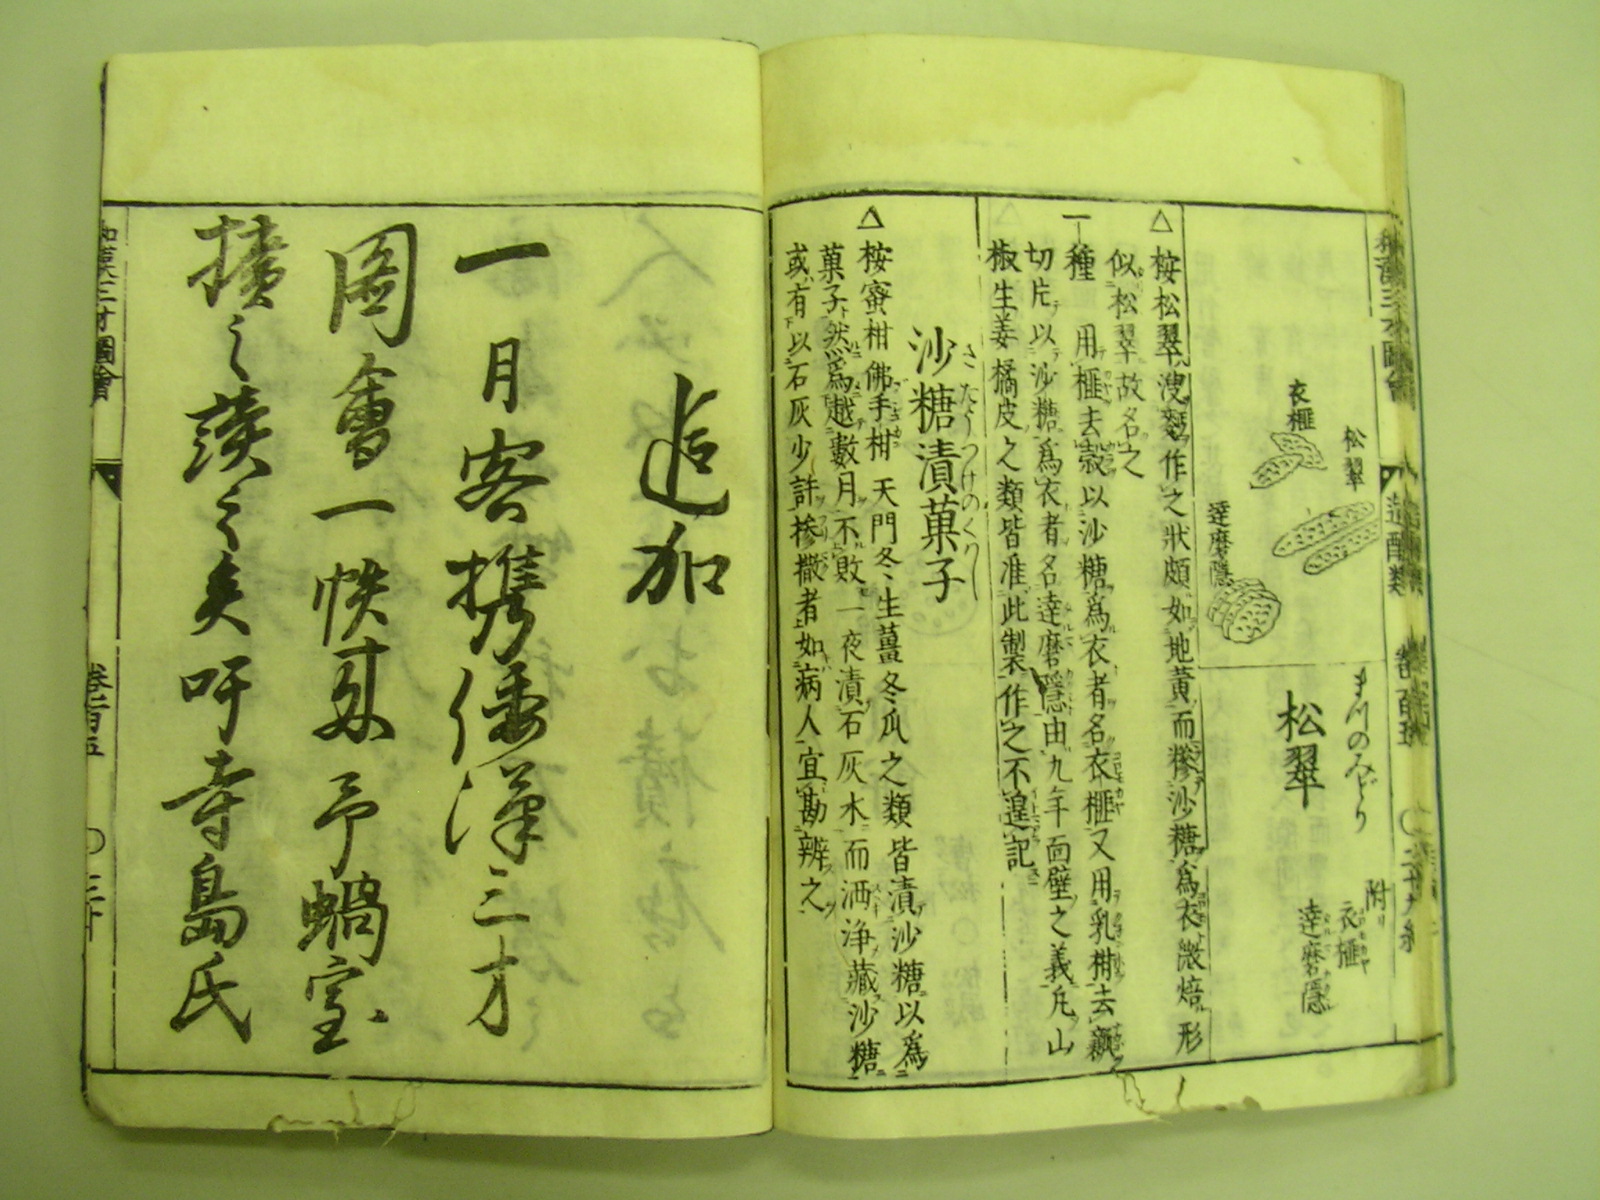 衣榧
松翠
達磨隠
まつのみどり
松翠
附リ
衣榧
達磨隠
△按松翠溲麪作之狀頗如地黄而糝沙糖爲衣微焙形
似松翠故名之
一種 用榧去殼以沙糖爲衣者名衣榧又用乳柑去瓤
切片以沙糖爲衣者名達磨隠由九年面壁之義凡山
椒生姜橘皮之類皆准此製作之不遑記
さたうつけのくはし
沙糖漬菓子
△按蜜柑佛手柑天門冬生薑冬瓜之類皆漬沙糖以爲
菓子然爲越數月不敗一夜漬石灰水而洒浄藏沙糖
或有以石灰少許摻撒者如病人宜勘辨之
追加
一月客携倭漢三才
圖會一帙來予蝸室
擴之讀之矣吁寺島氏
和漢三才圖會
卷百五
○三十